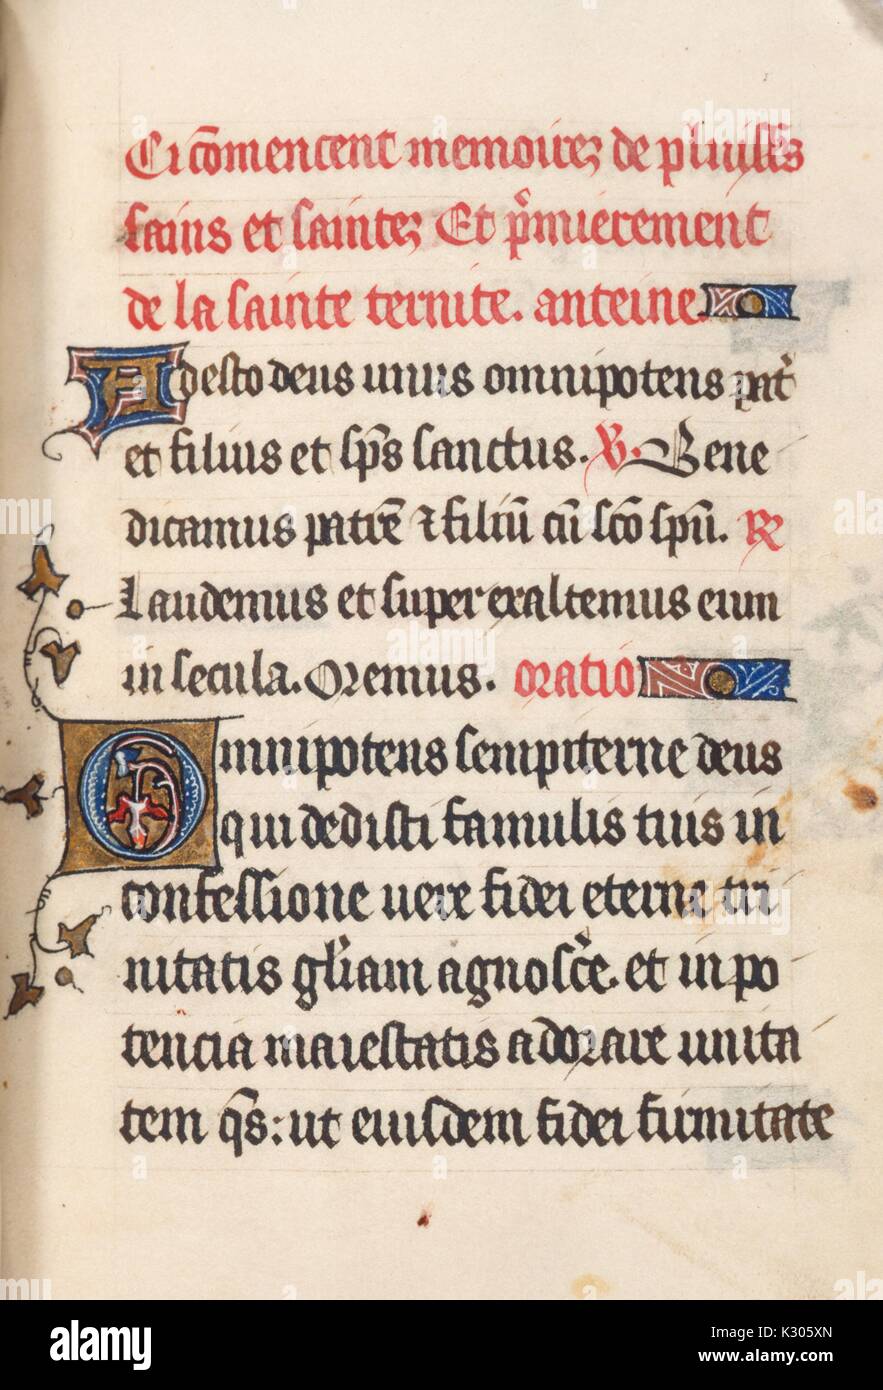 Ci cõmencent memoirez de pluisss
sains et saintez Et p̃mierement
de la sainte ternite. anteine.
Adesto deus unus omnipotens pat̾
et filius et sp̃s sanctus. ℣. Bene
dicamus patrẽ ⁊ filiũ cũ sc̃o spũ. ℟
Laudemus et super exaltemus eum
in secula. Oremus. oratio
Omnipotens sempiterne deus
qui dedisti famulis tuis in
confessione vere fidei eterne tri
nitatis gl̃iam agnosc̾e. et in po
tencia maiestatis adorare unita
tem q̃s: ut eiusdem fidei firmitate
alamy
www.alamy.com
Image ID: K305XN